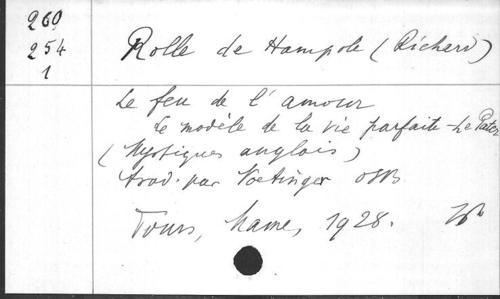 260
254
1
Rolle de Hampole (Richard)
Le feu de l'amour
Le modèle de la vie parfaite - Le Pater
(Mystiques anglais)
trad. par Noetinger OSB.
Tours, Mame, 1928.